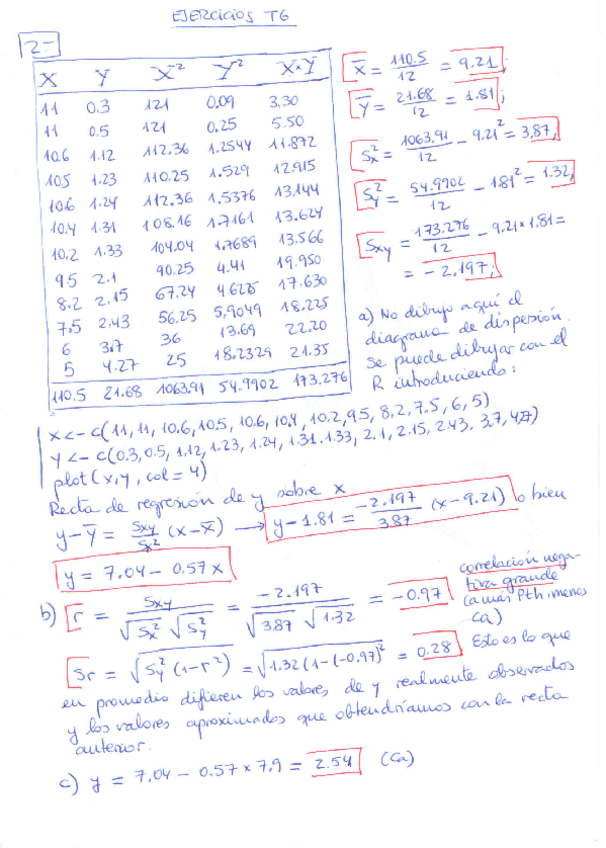 EJERCICIOS T6
2-
X Y X² Y² X×Y
11 0.3 121 0.09 3.30
11 0.5 121 0.25 5.50
10.6 1.12 112.36 1.2544 11.872
10.5 1.23 110.25 1.529 12.915
10.6 1.24 112.36 1.5376 13.144
10.4 1.31 108.16 1.7161 13.624
10.2 1.33 104.04 1.7689 13.566
9.5 2.1 90.25 4.41 19.950
8.2 2.15 67.24 4.6225 17.630
7.5 2.43 56.25 5.9049 18.225
6 3.7 36 13.69 22.20
5 4.27 25 18.2329 21.35
110.5 21.68 1063.91 54.9902 173.276
X̄ = 110.5/12 = 9.21;
Ȳ = 21.68/12 = 1.81;
Sx² = 1063.91/12 - 9.21² = 3.87;
Sy² = 54.9902/12 - 1.81² = 1.32;
Sxy = 173.276/12 - 9.21×1.81 =
= -2.197;
a) No dibujo aquí el
diagrama de dispersión.
Se puede dibujar con el
R introduciendo:
x <- c(11, 11, 10.6, 10.5, 10.6, 10.4, 10.2, 9.5, 8.2, 7.5, 6, 5)
y <- c(0.3, 0.5, 1.12, 1.23, 1.24, 1.31, 1.33, 2.1, 2.15, 2.43, 3.7, 4.27)
plot(x, y, col = 4)
Recta de regresión de y sobre x
y - Ȳ = Sxy/Sx² (x - X̄) → y - 1.81 = -2.197/3.87 (x - 9.21) o bien
y = 7.04 - 0.57x
b) r = Sxy/(√Sx² √Sy²) = -2.197/(√3.87 √1.32) = -0.97
correlación nega-
tiva grande
(a más Pth, menos
Ca)
Sr = √Sy²(1-r²) = √1.32(1-(-0.97)² = 0.28 Esto es lo que
en promedio difieren los valores de y realmente observados
y los valores aproximados que obtendríamos con la recta
anterior.
c) y = 7.04 - 0.57 × 7.9 = 2.54 (Ca)